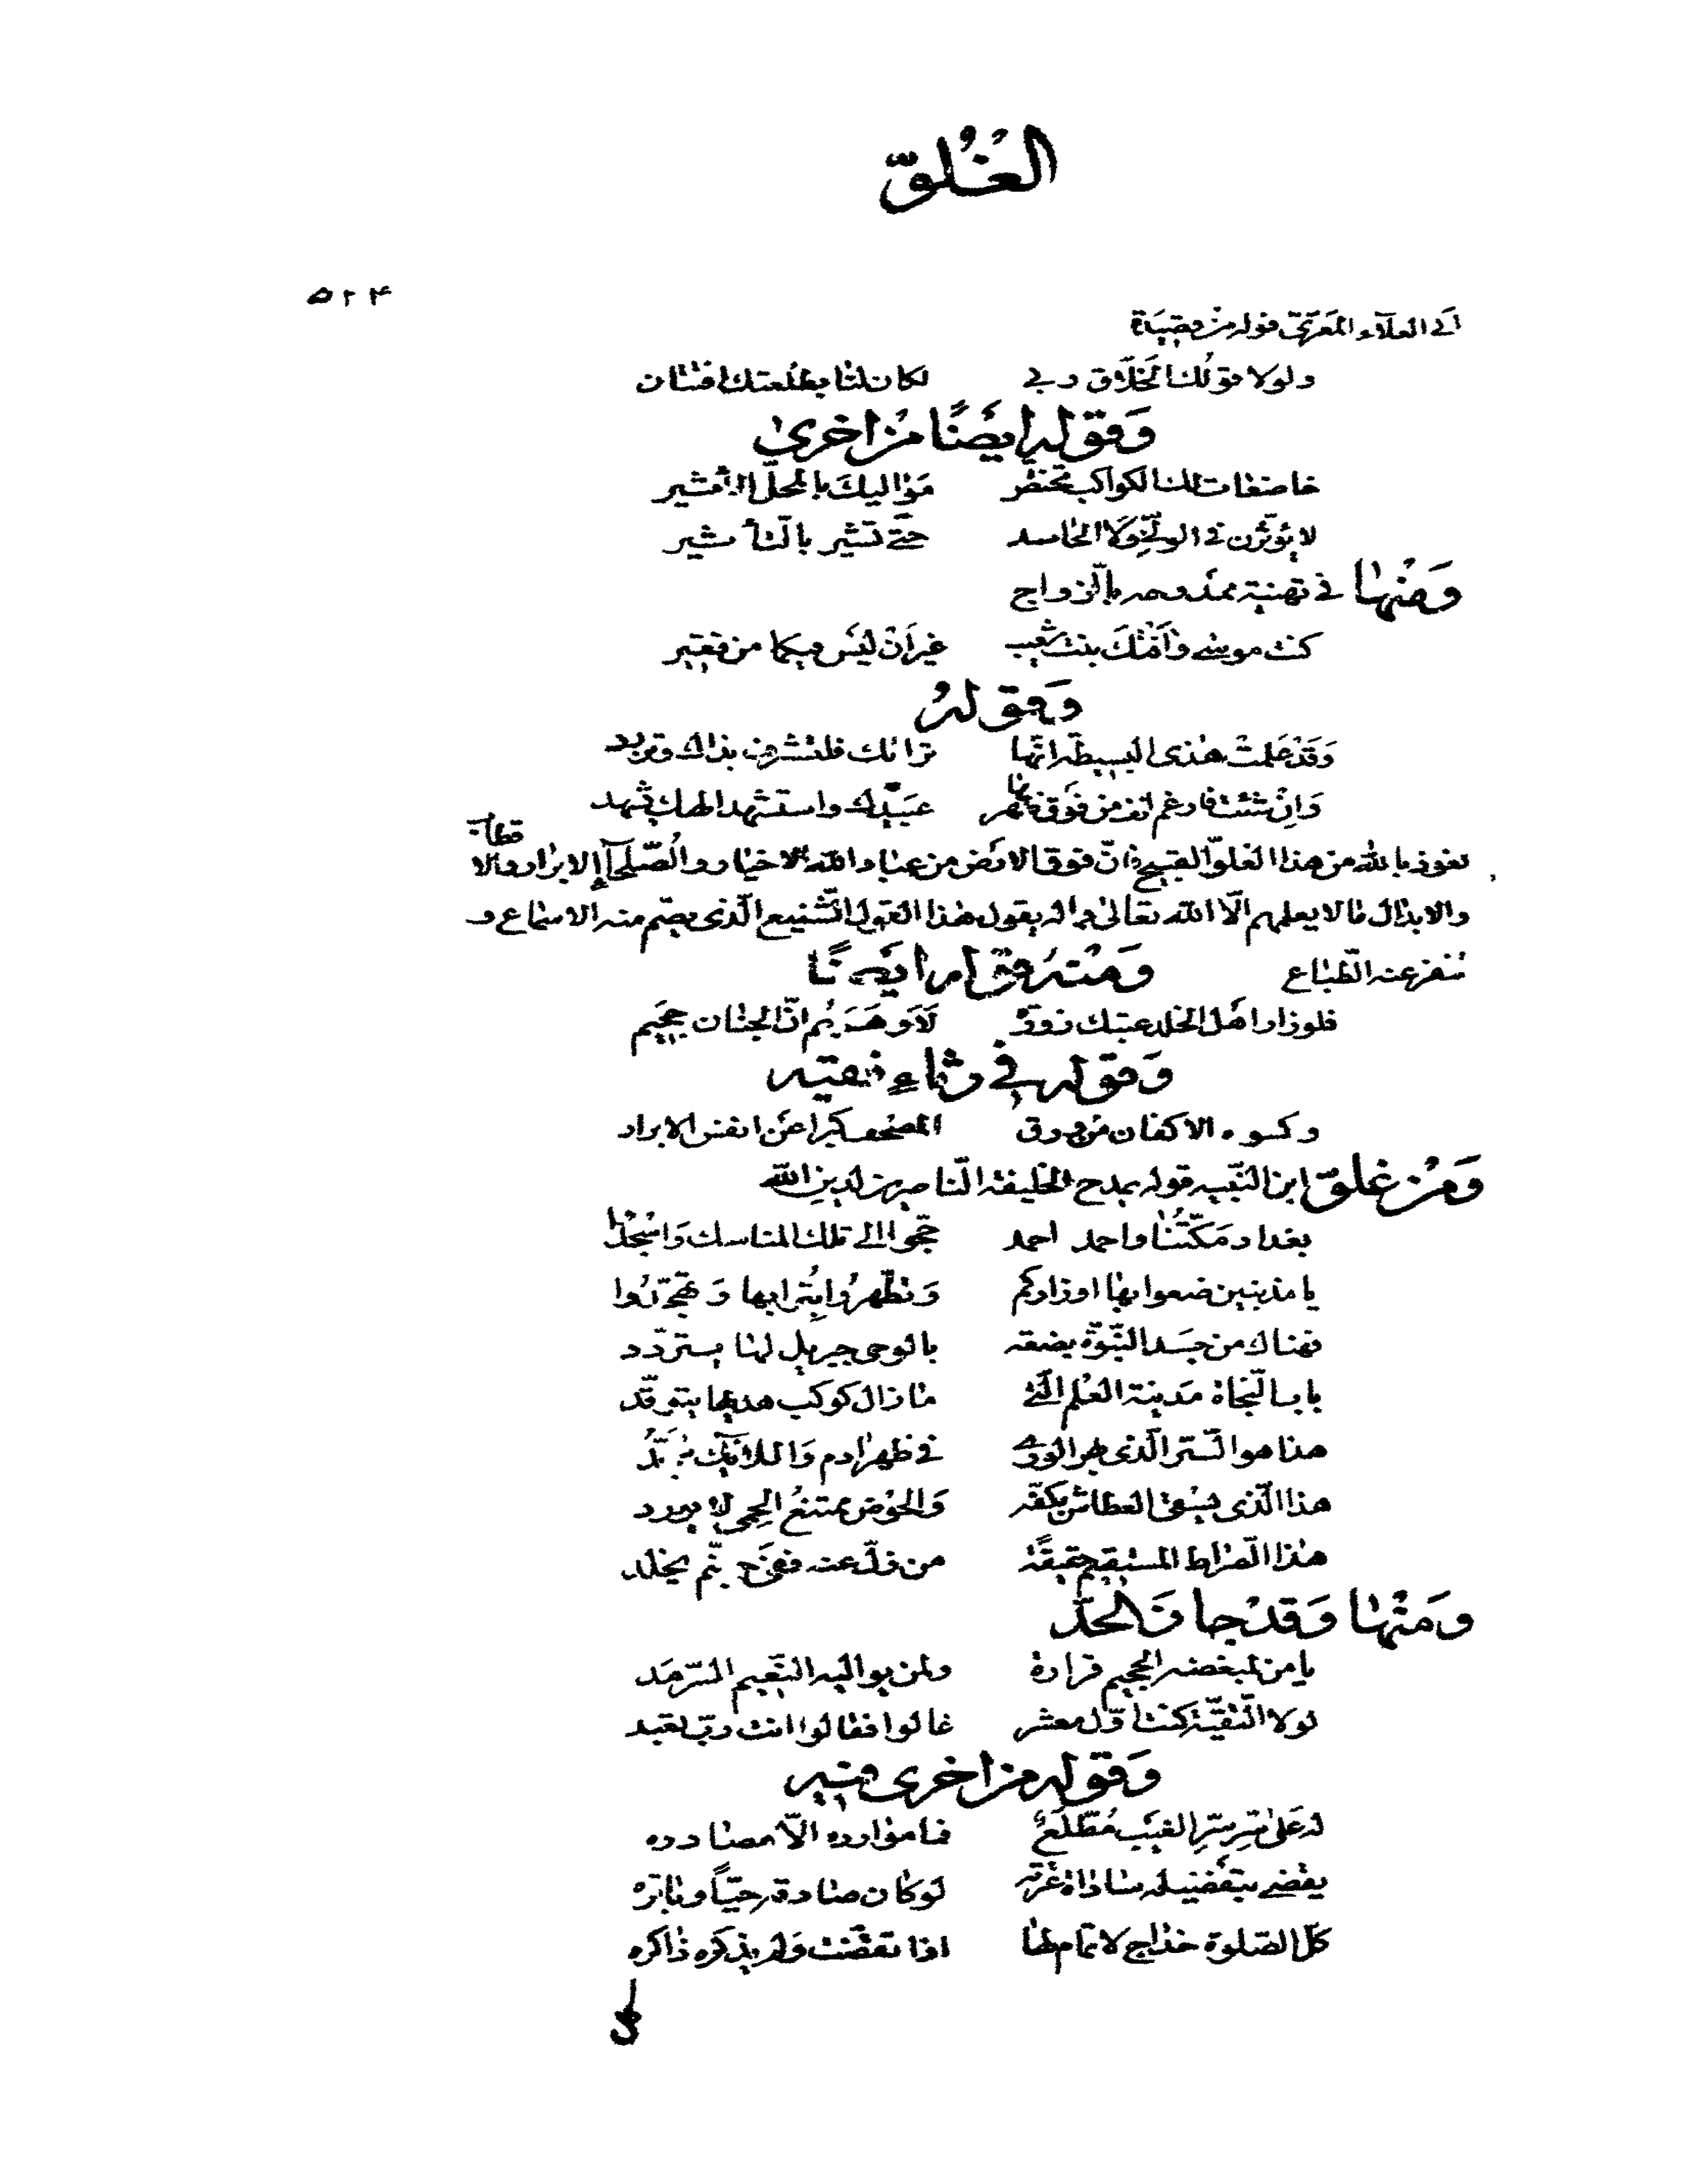 الغُلوّ
٥٢٤
ابى العلآء المَعَرّىّ قوله من قصيدة
ولولا قولُك الخلّاق ربى لكان لنا بطلعتك افتتان
وَقوله ايضًا من اخرى
خاضعات لك الكواكب تختصّ مَواليكَ بالمحلّ الأثير
لا يؤثّرن فى الولىّ وَلا الحاسد حتّى تشير بالتأشير
وَمنها فى تهنية ممدوحه بالزواج
كنت موسى وافتك بنت شعيب غير أنْ ليس فيكما من فقير
وَقوله
وَقدْ عَلمتْ هذى البسيطة انّها تراثك فلتشرف بذاك وتزيد
وَانْ شئت فازعم انّ من فوق ظهرها عبيدك واستشهد الهك يشهد
نعوذ بالله من هذا الغلوّ القبيح فانّ فوق الارض من عباد الله الاخيار والصّلحآء الابرار والاقطاب
والابدال ما لا يعلمهم الّا الله تعالى ماله يقول هذا القول الشّنيع الّذى يصمّ منه الاسماع و
تنفر عنه الطّباع وَمنه قوله ايضًا
فلو زار اهل الخلد عتبك زورة لَاَوهمَهم انّ الجنان جحيم
وَقوله فى رثاء فقيه
وكسوه الاكفان من ورق المصحف كبرا عن انفس الابراد
وَمن غلوّ ابن النّبيه قوله يمدح الخليفة النّاصر لدين الله
بغداد مَكّتُنا واحمد احمد حجّوا الى تلك المناسك وَاسْجُدُوا
يا مذنبين ضعوا بها اوزاركم وَتطّهرُوا بتُرابها وَتهجّدُوا
فهناك من جَسَد النّبوّة بضعة بالوحى جبريل لها يتردّد
باب النّجاة مَدينة العْلم الّتى ما زال كوكب هديها يتوقّد
هذا هو السّر الّذى بهر الورى فى ظهر ادم وَالملائك سُجّدُ
هذا الّذى يسْقى العطاش بكفّه وَالحوْض ممتنعُ الحِمى لا يورد
هذا الصّراط المستقيم حقيقةً من زلّ عنه ففى جهنّم يخلد
ومَنْها وَقدْ جازَ الحدّ
يا من لمبغضه الجحيم قرارة ولمن يواليه النّعيم السّرمَد
لولا التّقيّة كنت اوّل معشر غالوا فقالوا انت ربّ يعبد
وَقوله من اخرى فيه
له عَلى سِرّ سِترِ الغيْب مُطّلَعٌ فما موارده الّا مصادره
يقضى بتفضيله سادات عترته لو كان صادقه حيّاً وباقره
كلّ الصّلوة خداج لا تمام لها اذا تقضّت وَلم يذكره ذاكره